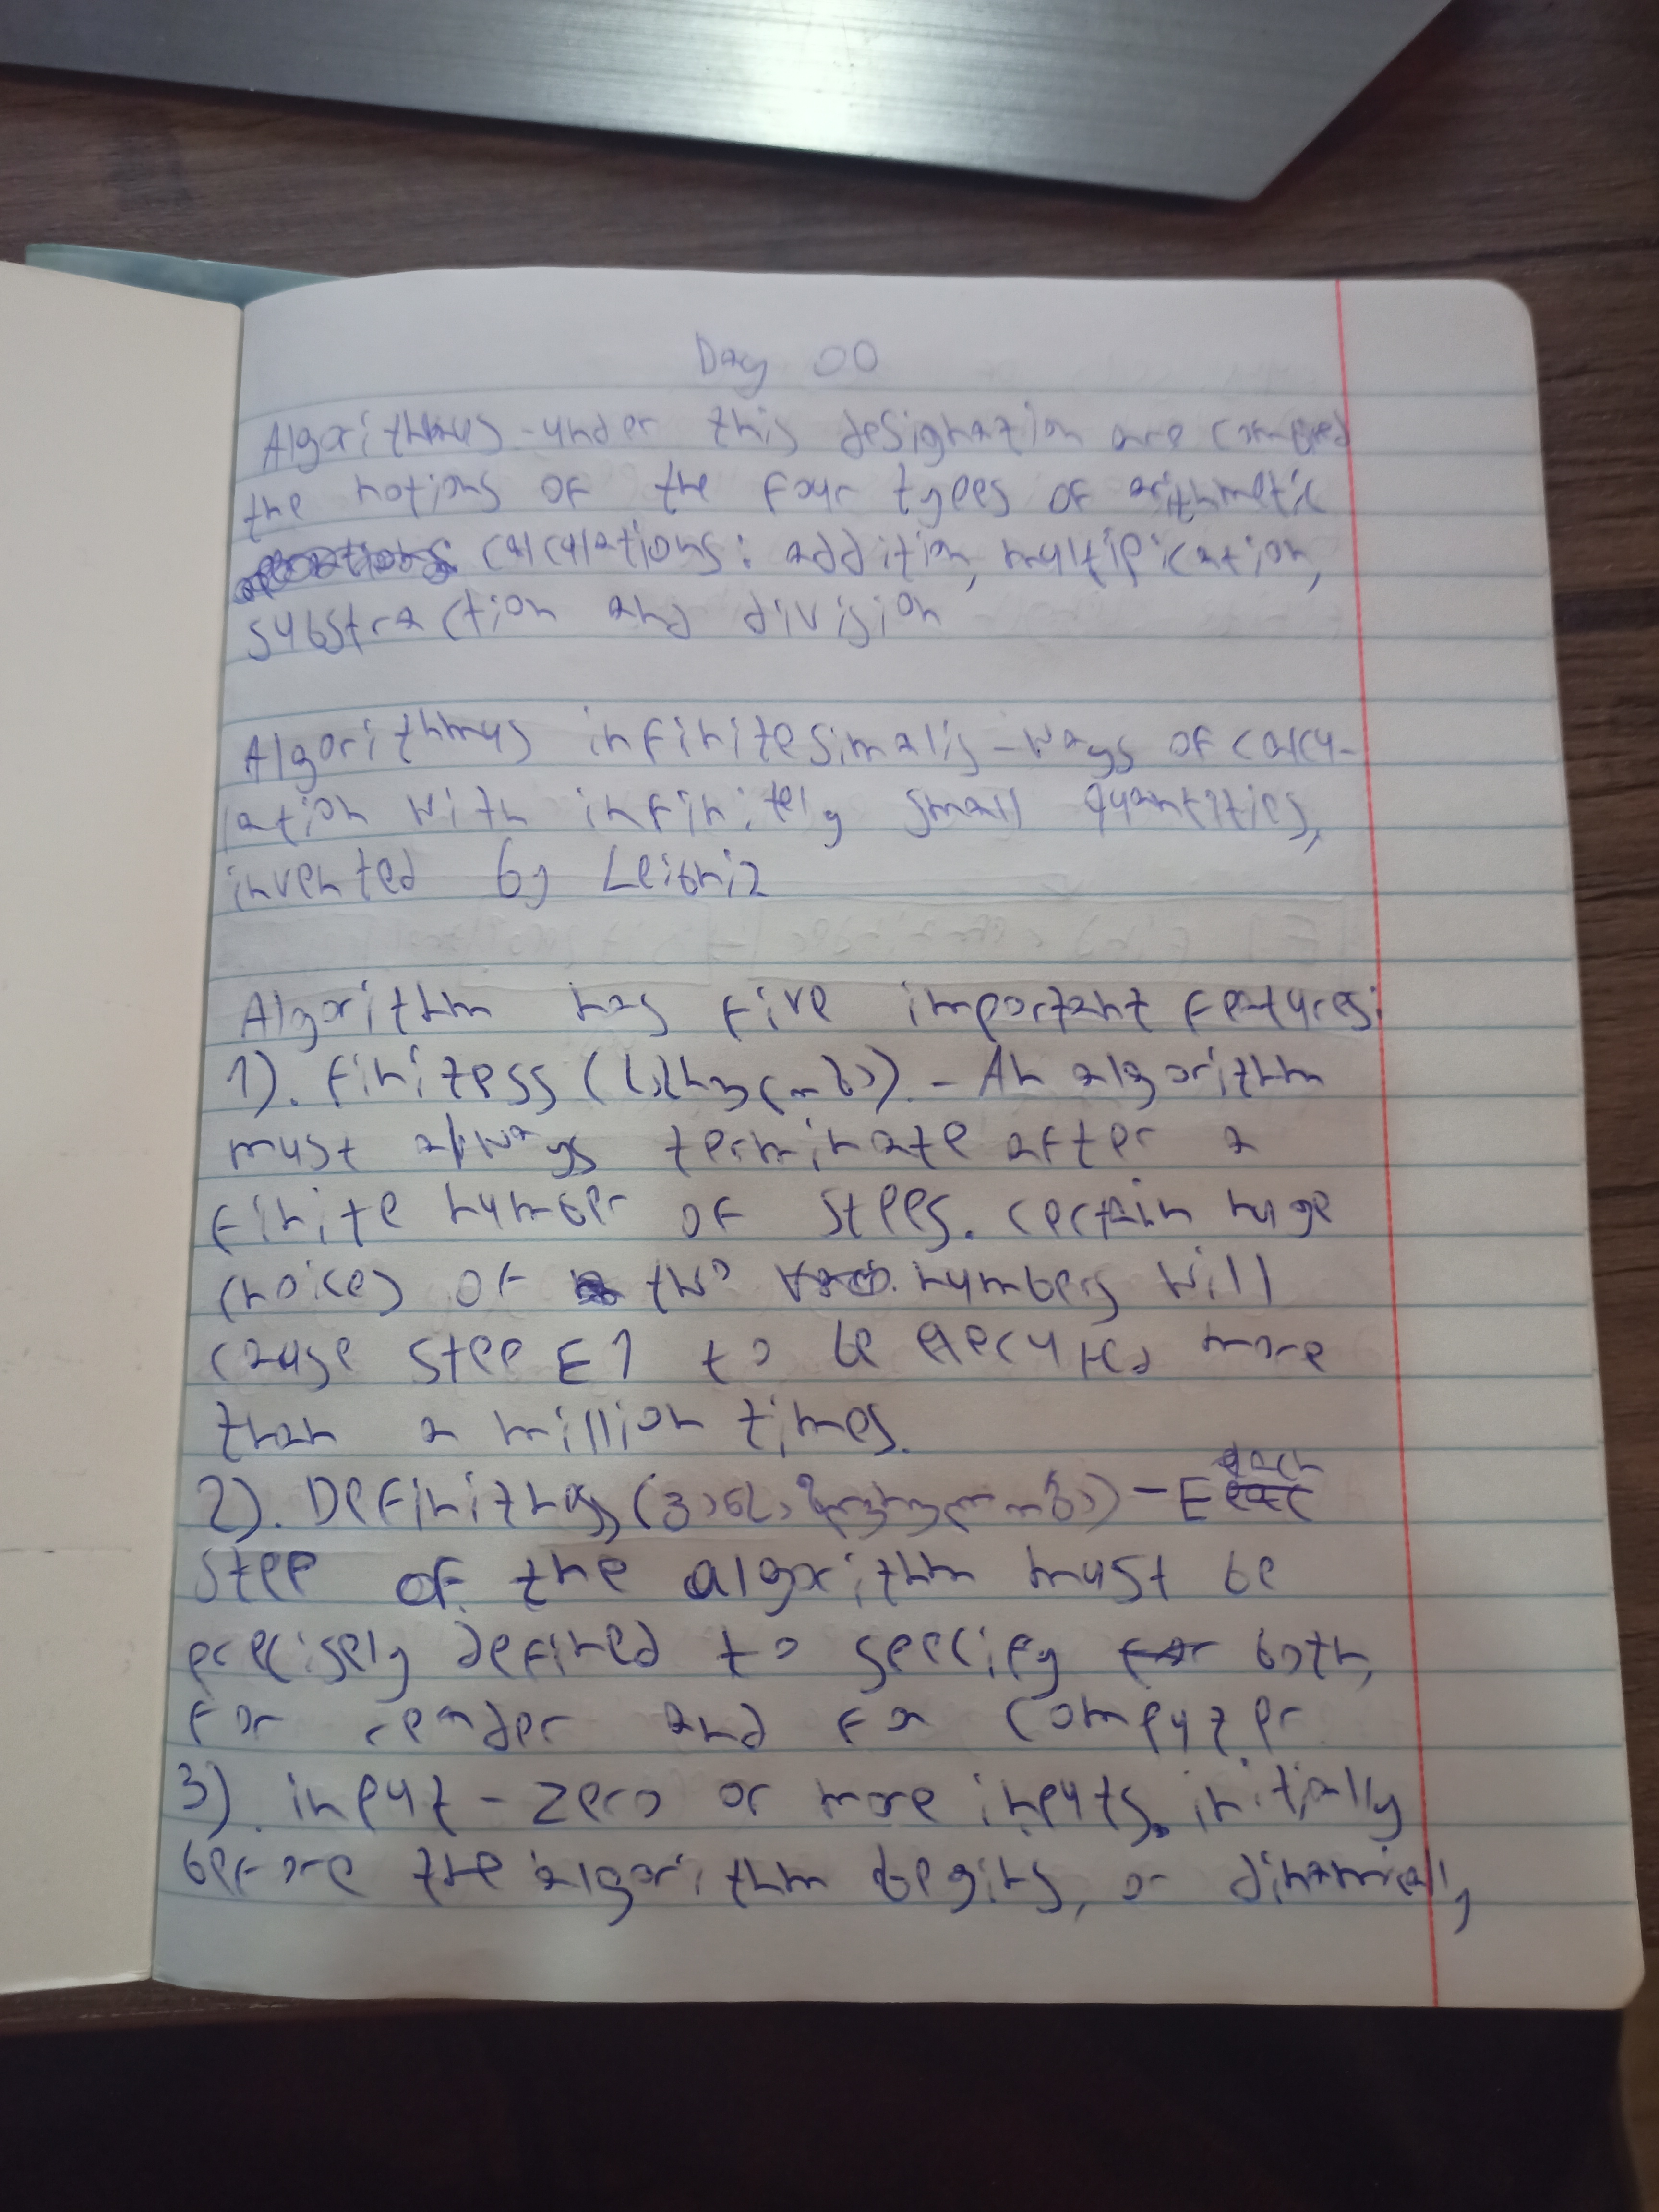 Day 00
Algorithmus - under this designation are combined
the notions of the four types of arithmetic
calculations: addition, multiplication,
substraction and division
Algorithmus infinitesimalis - ways of calcu-
lation with infinitely small quantities,
invented by Leibniz
Algorithm has five important features:
1). Finitess ( ) - An algorithm
must always terminate after a
finite number of steps. Certain huge
choices of two numbers will
cause step E1 to be executed more
than a million times.
2). Definitnes ( ) - Each
step of the algorithm must be
precisely defined to specify for both,
for reader and for computer
3). input - zero or more inputs. initially
before the algorithm begins, or dinamically